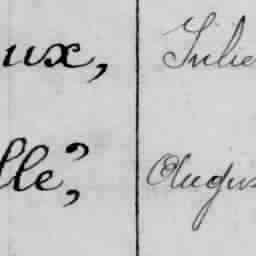 ux, Julie
lle, Augus